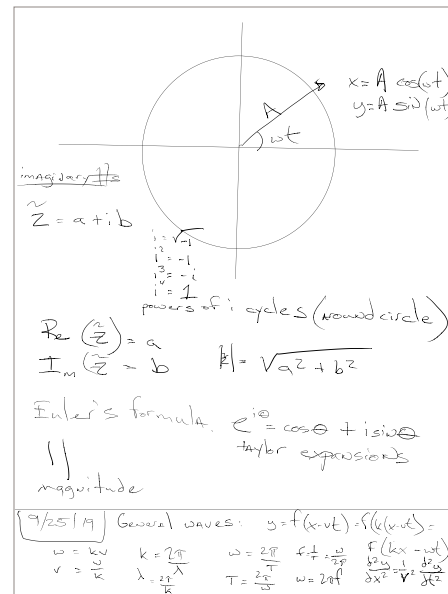 x = A cos(ωt)
y = A sin(ωt
A
ωt
imaginary #s
z̃ = a + ib
i = √-1
i² = -1
i³ = -i
i⁴ = 1
powers of i cycles (around circle)
Re (z̃) = a
Im (z̃) = b
|z̃| = √a² + b²
Euler's formula.
e^iθ = cosθ + i sinθ
taylor expansions
||
magnitude
9/25/19 General waves: y = f(x - vt) = f(k(x - vt) =
f(kx - ωt)
ω = kv k = 2π/λ ω = 2π/T f = 1/T = ω/2π
v = ω/k λ = 2π/k ω = 2πf d²y/dx² = 1/v² d²y/dt²